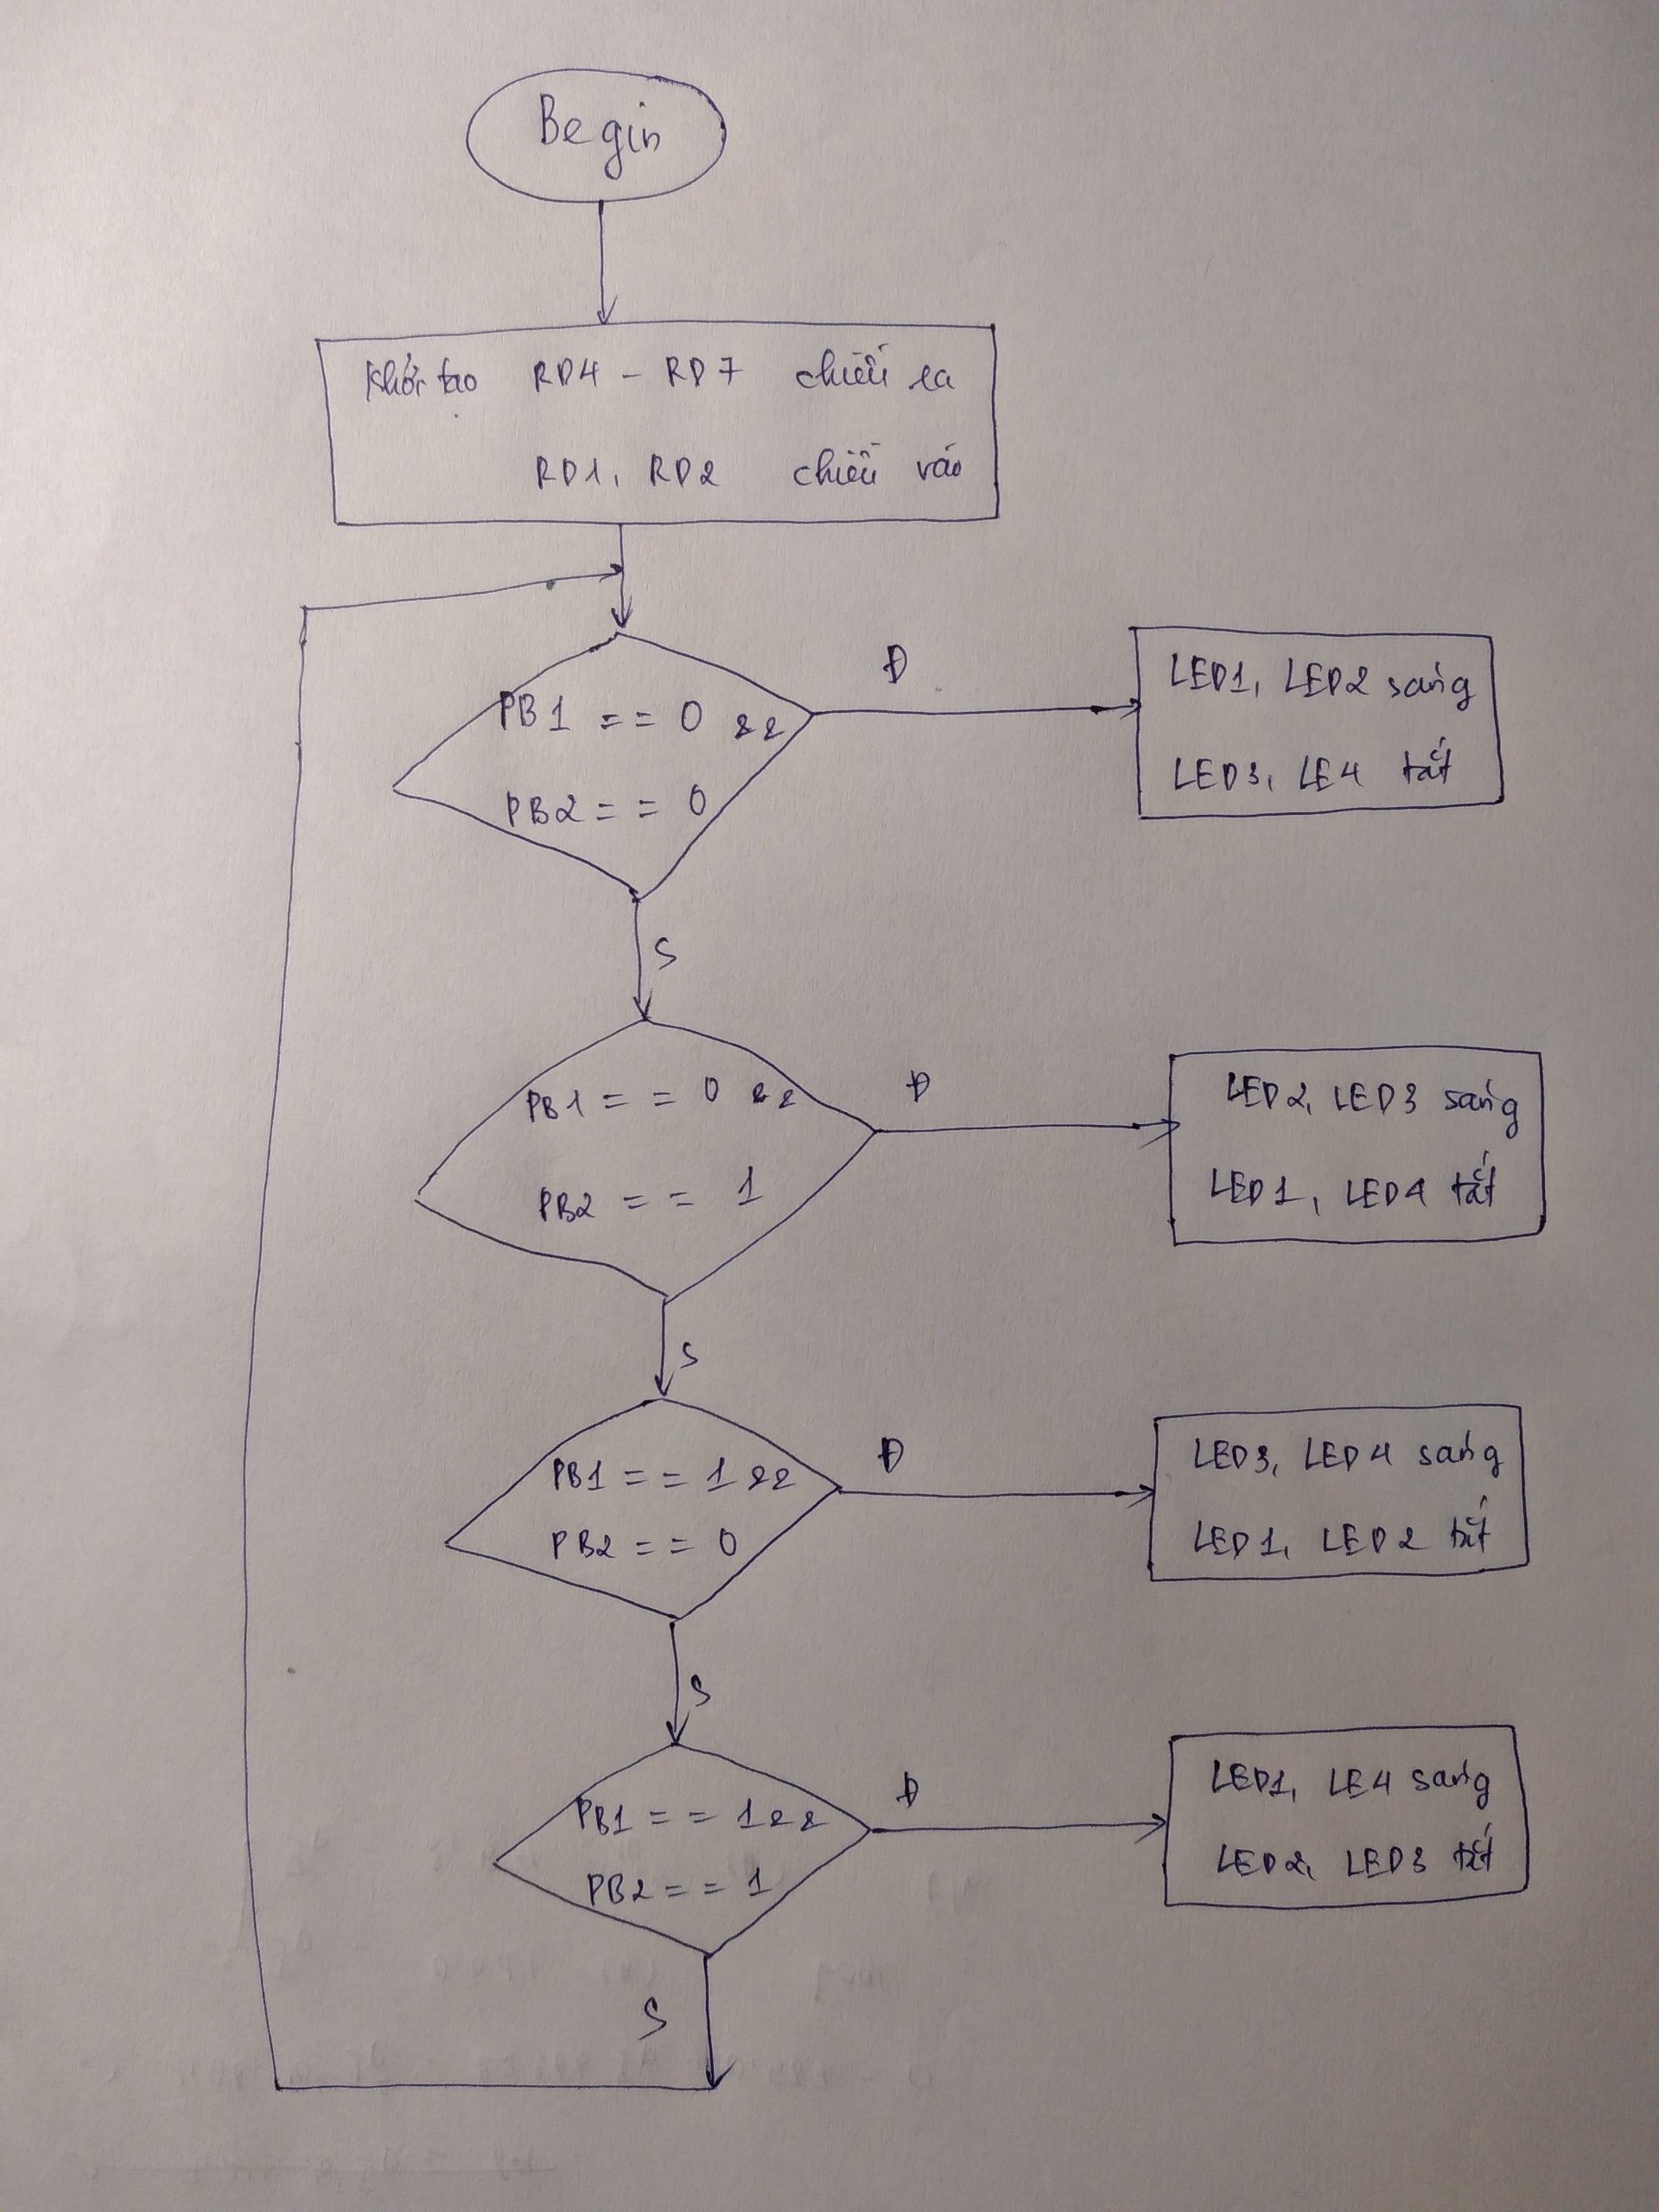 Begin
Khởi tạo RD4 - RD7 chiều ra
RD1, RD2 chiều vào
PB1 == 0 &&
PB2 == 0
Đ
LED1, LED2 sáng
LED3, LE4 tắt
S
PB1 == 0 &&
PB2 == 1
Đ
LED2, LED3 sáng
LED1, LED4 tắt
S
PB1 == 1 &&
PB2 == 0
Đ
LED3, LED4 sáng
LED1, LED2 tắt
S
PB1 == 1 &&
PB2 == 1
Đ
LED1, LE4 sáng
LED2, LED3 tắt
S